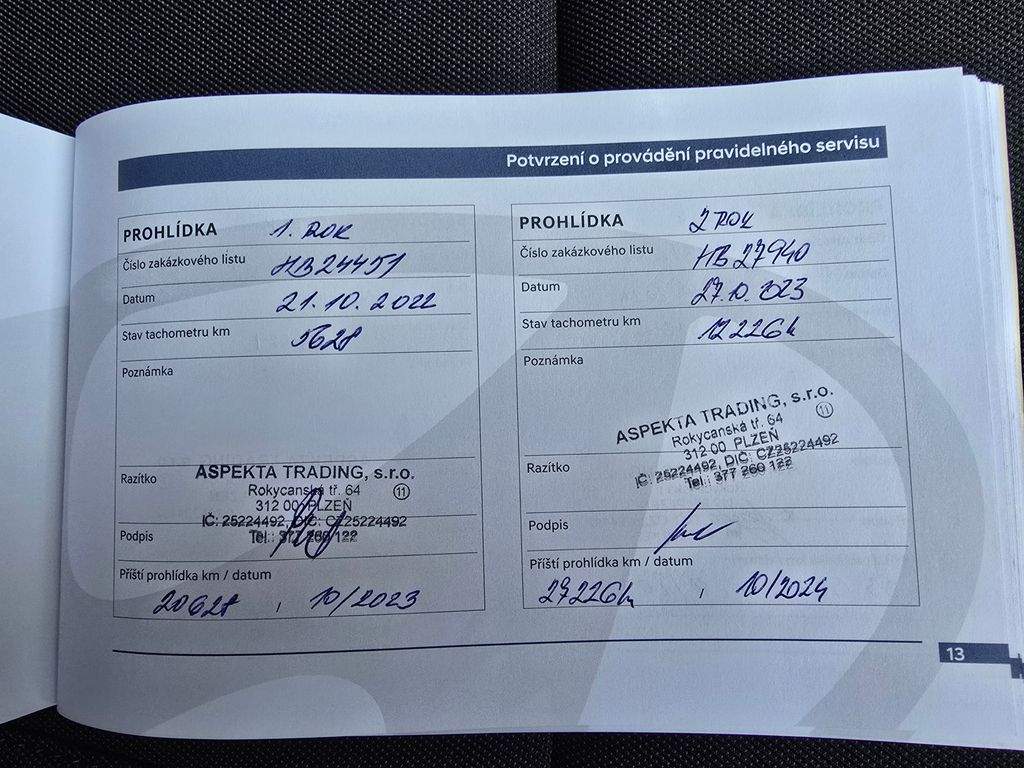 Potvrzení o provádění pravidelného servisu
PROHLÍDKA 1. ROK
Číslo zakázkového listu HB24451
Datum 21.10.2022
Stav tachometru km 5628
Poznámka
Razítko
ASPEKTA TRADING, s.r.o.
Rokycanská tř. 64
11
312 00 PLZEŇ
IČ: 25224492, DIČ: CZ25224492
Tel.: 377 260 122
Podpis
Příští prohlídka km / datum
20628 / 10/2023
PROHLÍDKA 2 ROK
Číslo zakázkového listu HB27940
Datum 27.10.2023
Stav tachometru km 12226
Poznámka
ASPEKTA TRADING, s.r.o.
Rokycanská tř. 64
11
312 00 PLZEŇ
IČ: 25224492, DIČ: CZ25224492
Tel.: 377 260 122
Razítko
Podpis
Příští prohlídka km / datum
27226 / 10/2024
13